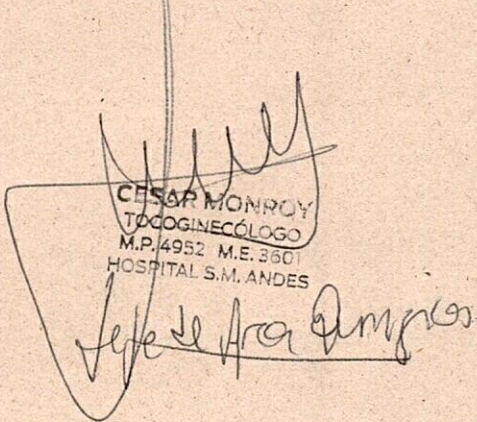 CESAR MONROY
TOCOGINECÓLOGO
M.P. 4952 M.E. 3601
HOSPITAL S.M. ANDES
Jefe de Area